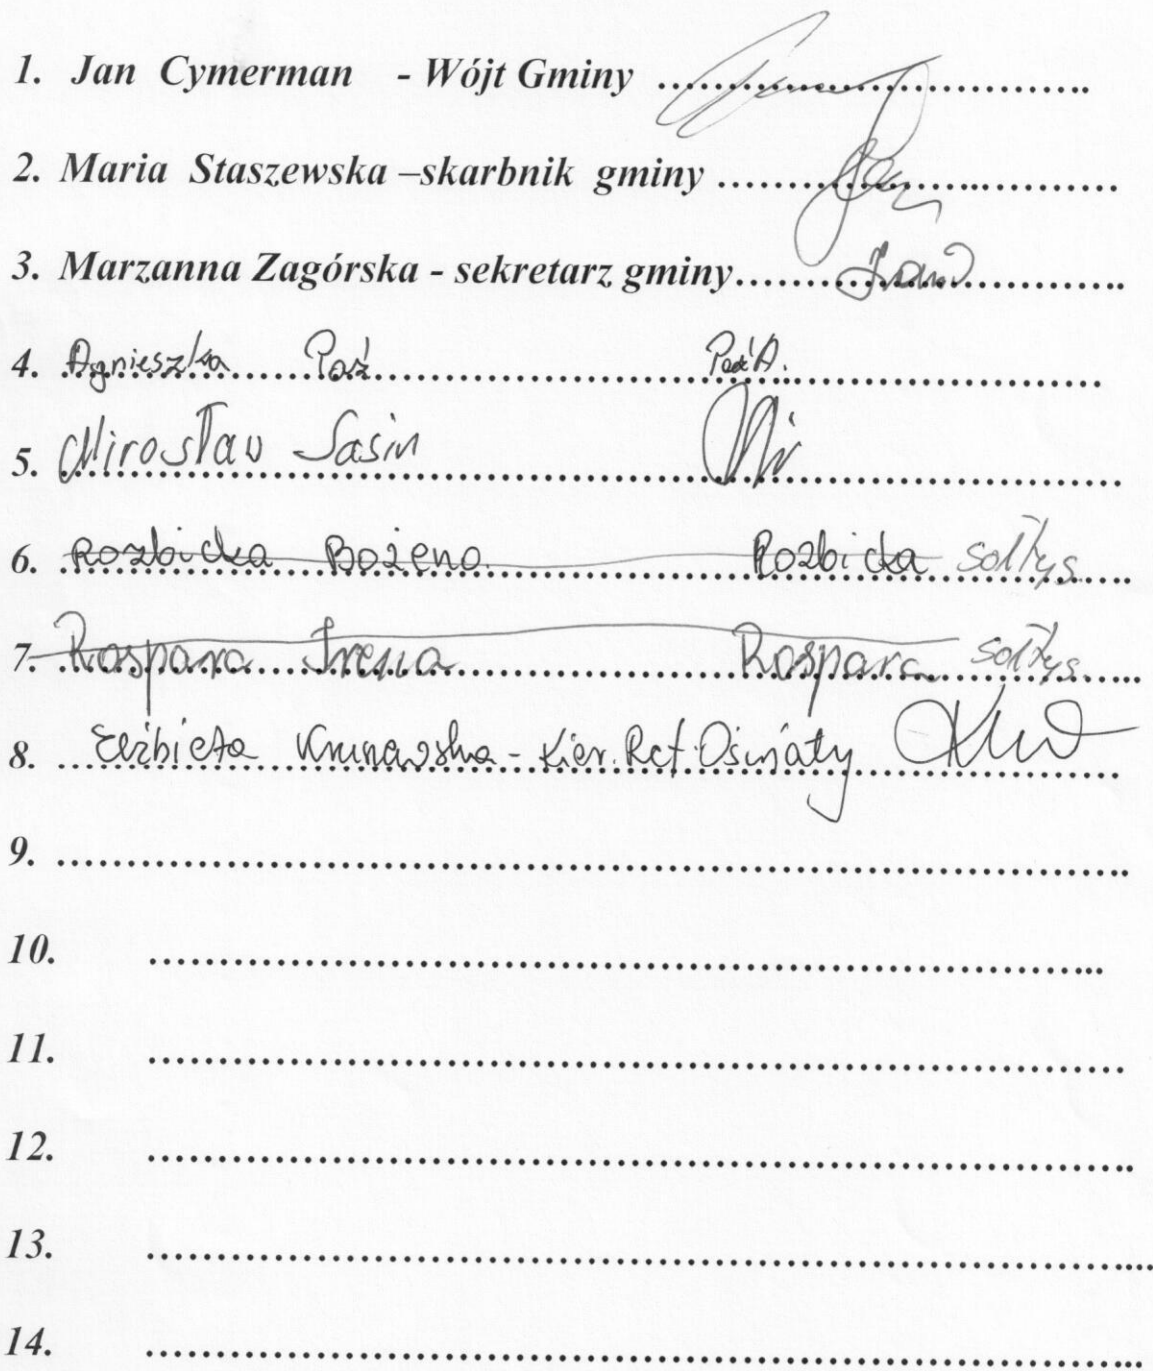 1. Jan Cymerman - Wójt Gminy ........................................
2. Maria Staszewska –skarbnik gminy ........................................
3. Marzanna Zagórska - sekretarz gminy........................................
4. Agnieszka Paź Paź A.
5. Mirosław Sasin Mir
6. Rozbicka Bożena Rozbicka sołtys
7. Rospara Irena Rospara sołtys
8. Elżbieta - Kier. Ref. Oświaty
9. ........................................
10. ........................................
11. ........................................
12. ........................................
13. ........................................
14. ........................................